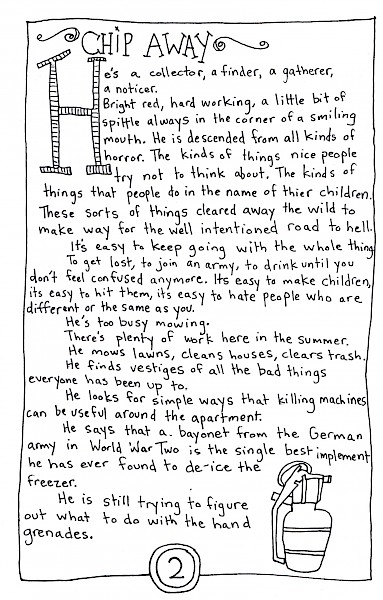 CHIP AWAY
He's a collector, a finder, a gatherer,
a noticer.
Bright red, hard working, a little bit of
spittle always in the corner of a smiling
mouth. He is descended from all kinds of
horror. The kinds of things nice people
try not to think about. The kinds of
things that people do in the name of thier children.
These sorts of things cleared away the wild to
make way for the well intentioned road to hell.
It's easy to keep going with the whole thing
To get lost, to join an army, to drink until you
don't feel confused anymore. Its easy to make children,
its easy to hit them, its easy to hate people who are
different or the same as you.
He's too busy mowing.
There's plenty of work here in the summer.
He mows lawns, cleans houses, clears trash.
He finds vestiges of all the bad things
everyone has been up to.
He looks for simple ways that killing machines
can be useful around the apartment.
He says that a bayonet from the German
army in World War Two is the single best implement
he has ever found to de-ice the
freezer.
He is still trying to figure
out what to do with the hand
grenades.
2